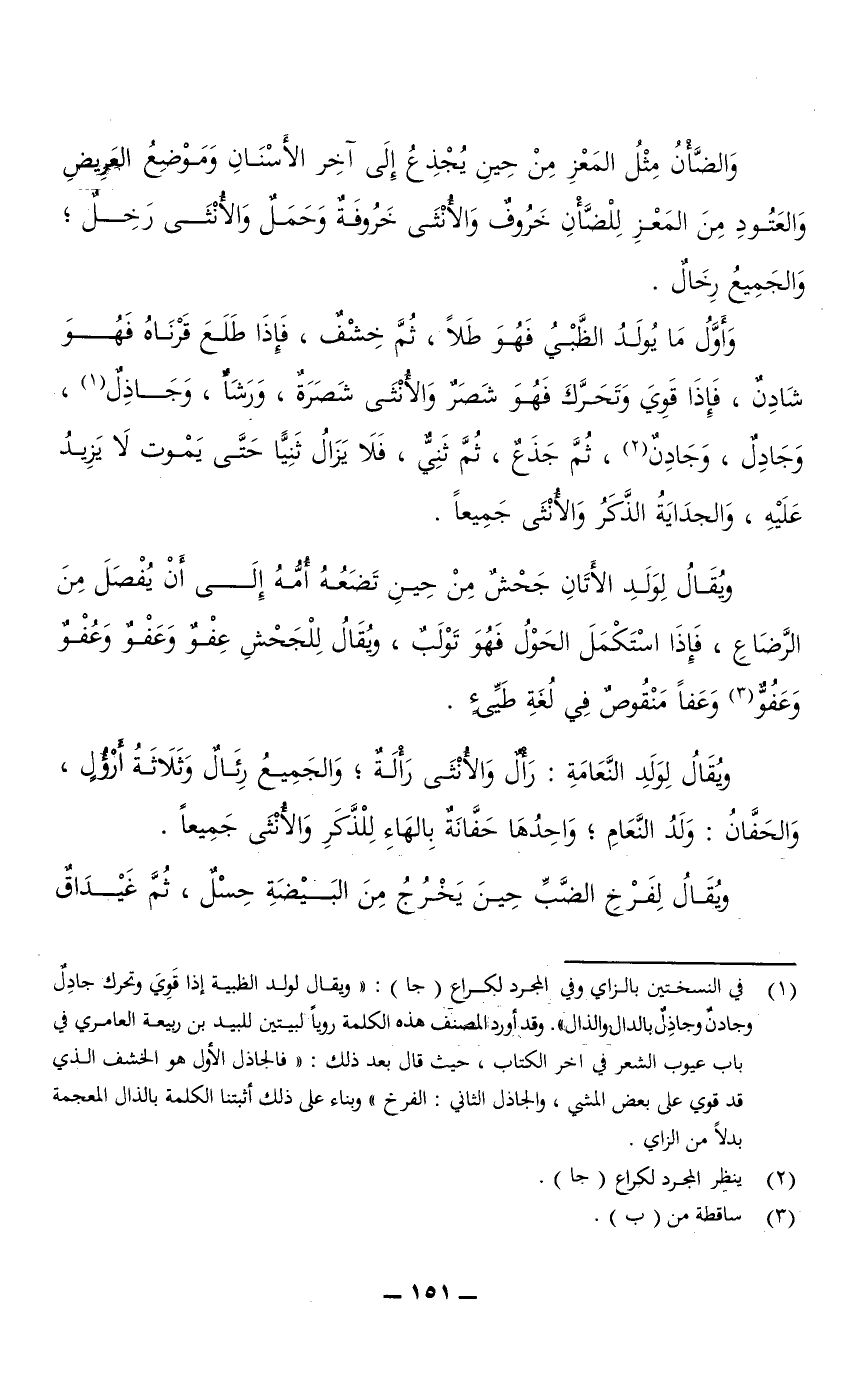 وَالضَّأْنُ مِثْلُ المَعْزِ مِنْ حِينِ يُجْذِعُ إِلَى آخِرِ الأَسْنَـانِ وَمَـوْضِعُ العَرِيضِ
وَالعَتُـودِ مِنَ المَعْـزِ لِلْضَّأْنِ خَرُوفٌ وَالأُنْثَـى خَرُوفَةٌ وَحَمَلٌ وَالأُنْثَـــى رَخِـــلٌ ؛
وَالجَمِيعُ رِخَالٌ .
وَأَوَّلُ مَا يُولَـدُ الظَّبْـيُ فَهُـوَ طَلاً ، ثُمَّ خِشْفٌ ، فَإِذَا طَلَـعَ قَرْنَـاهُ فَهُــــوَ
شَادِنٌ ، فَإِذَا قَوِيَ وَتَحَرَّكَ فَهُـوَ شَصَرٌ وَالأُنْثَـى شَصَرَةٌ ، وَرَشَأٌ ، وَجَــاذِلٌ(١) ،
وَجَادِلٌ ، وَجَادِنٌ(٢) ، ثُمَّ جَذَعٌ ، ثُمَّ ثَنِيٌّ ، فَلَا يَزَالُ ثَنِيًّا حَتَّـى يَمْـوت لَا يَزِيـدُ
عَلَيْهِ ، وَالجدَايَةُ الذَّكَرُ وَالأُنْثَى جَمِيعاً .
ويُقَـالُ لِوَلَـدِ الأَتَانِ جَحْشٌ مِنْ حِيـنِ تَضَعُـهُ أُمُّـهُ إِلَــــى أَنْ يُفْصَلَ مِنَ
الرَّضَاعِ ، فَإِذَا اسْتَكْمَلَ الحَوْلُ فَهُوَ تَوْلَبٌ ، ويُقَالُ لِلْجَحْشِ عِفْـوٌ وَعَفْـوٌ وَعُفْـوٌ
وَعَفُوٌّ(٣) وَعَفاً مَنْقُوصٌ فِي لُغَةِ طَيِّىءٍ .
ويُقَـالُ لِوَلَدِ النَّعَامَةِ : رَأْلٌ وَالأُنْثَـى رَأْلَـةٌ ؛ وَالجَمِيـعُ رِئَـالٌ وَثَلَاثَـةُ أَرْؤُلٍ ،
وَالحَفَّانُ : وَلَدُ النَّعَامِ ؛ وَاحِدُهَا حَفَّانَةٌ بِالهَاءِ لِلْذَّكَرِ وَالأُنْثَى جَمِيعاً .
ويُقَـالُ لِفَـرْخِ الضَبِّ حِيـنَ يَخْـرُجُ مِنَ البَــيْضَةِ حِسْلٌ ، ثُمَّ غَيْــدَاقٌ
(١) في النسختين بالـزاي وفي المجرد لكـراع ( جا ) : « ويقـال لولـد الظبيـة إذا قَوِيَ وتحرك جادِلٌ
وجادنٌ وجاذِلٌ بالدال والذال». وقد أورد المصنف هذه الكلمة روياً لبيتين للبيد بن ربيعة العامري في
باب عيوب الشعر في اخر الكتاب ، حيث قال بعد ذلك : « فالجاذل الأول هو الخشف الـذي
قد قوي على بعض المشي ، والجاذل الثاني : الفرخ » وبناء على ذلك أثبتنا الكلمة بالذال المعجمة
بدلاً من الزاي .
(٢) ينظر المجرد لكراع ( جا ) .
(٣) ساقطة من ( ب ) .
ــ ١٥١ ــ